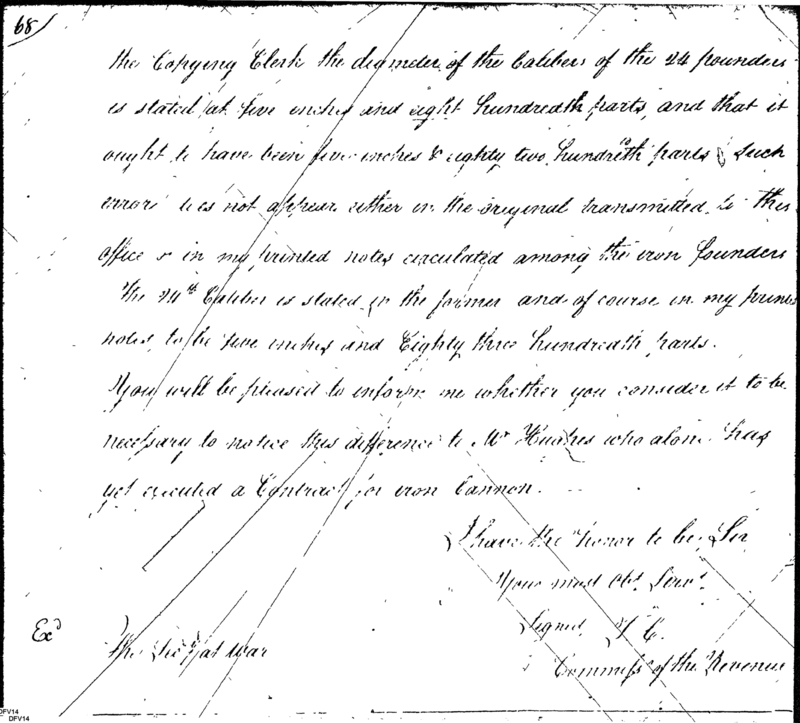 68
the Copying Clerk the diameter of the Calibers of the 24 pounders
is stated at five inches and eight hundredth parts, and that it
ought to have been five inches & eighty two hundredth parts Such
error does not appear either in the original transmitted to this
office or in my printed notes circulated among the iron founders
The 24th Caliber is stated in the former and of course in my printed
notes, to be five inches and Eighty three hundredth parts.
You will be pleased to inform me whether you consider it to be
necessary to notice this difference to Mr Hughes who alone has
yet executed a Contract for iron Cannon.
I have the honor to be Sir
Your most Obt. Servt.
Signed T C.
Exd
The Secy at War
Commissr of the Revenue
DFV14
DFV14